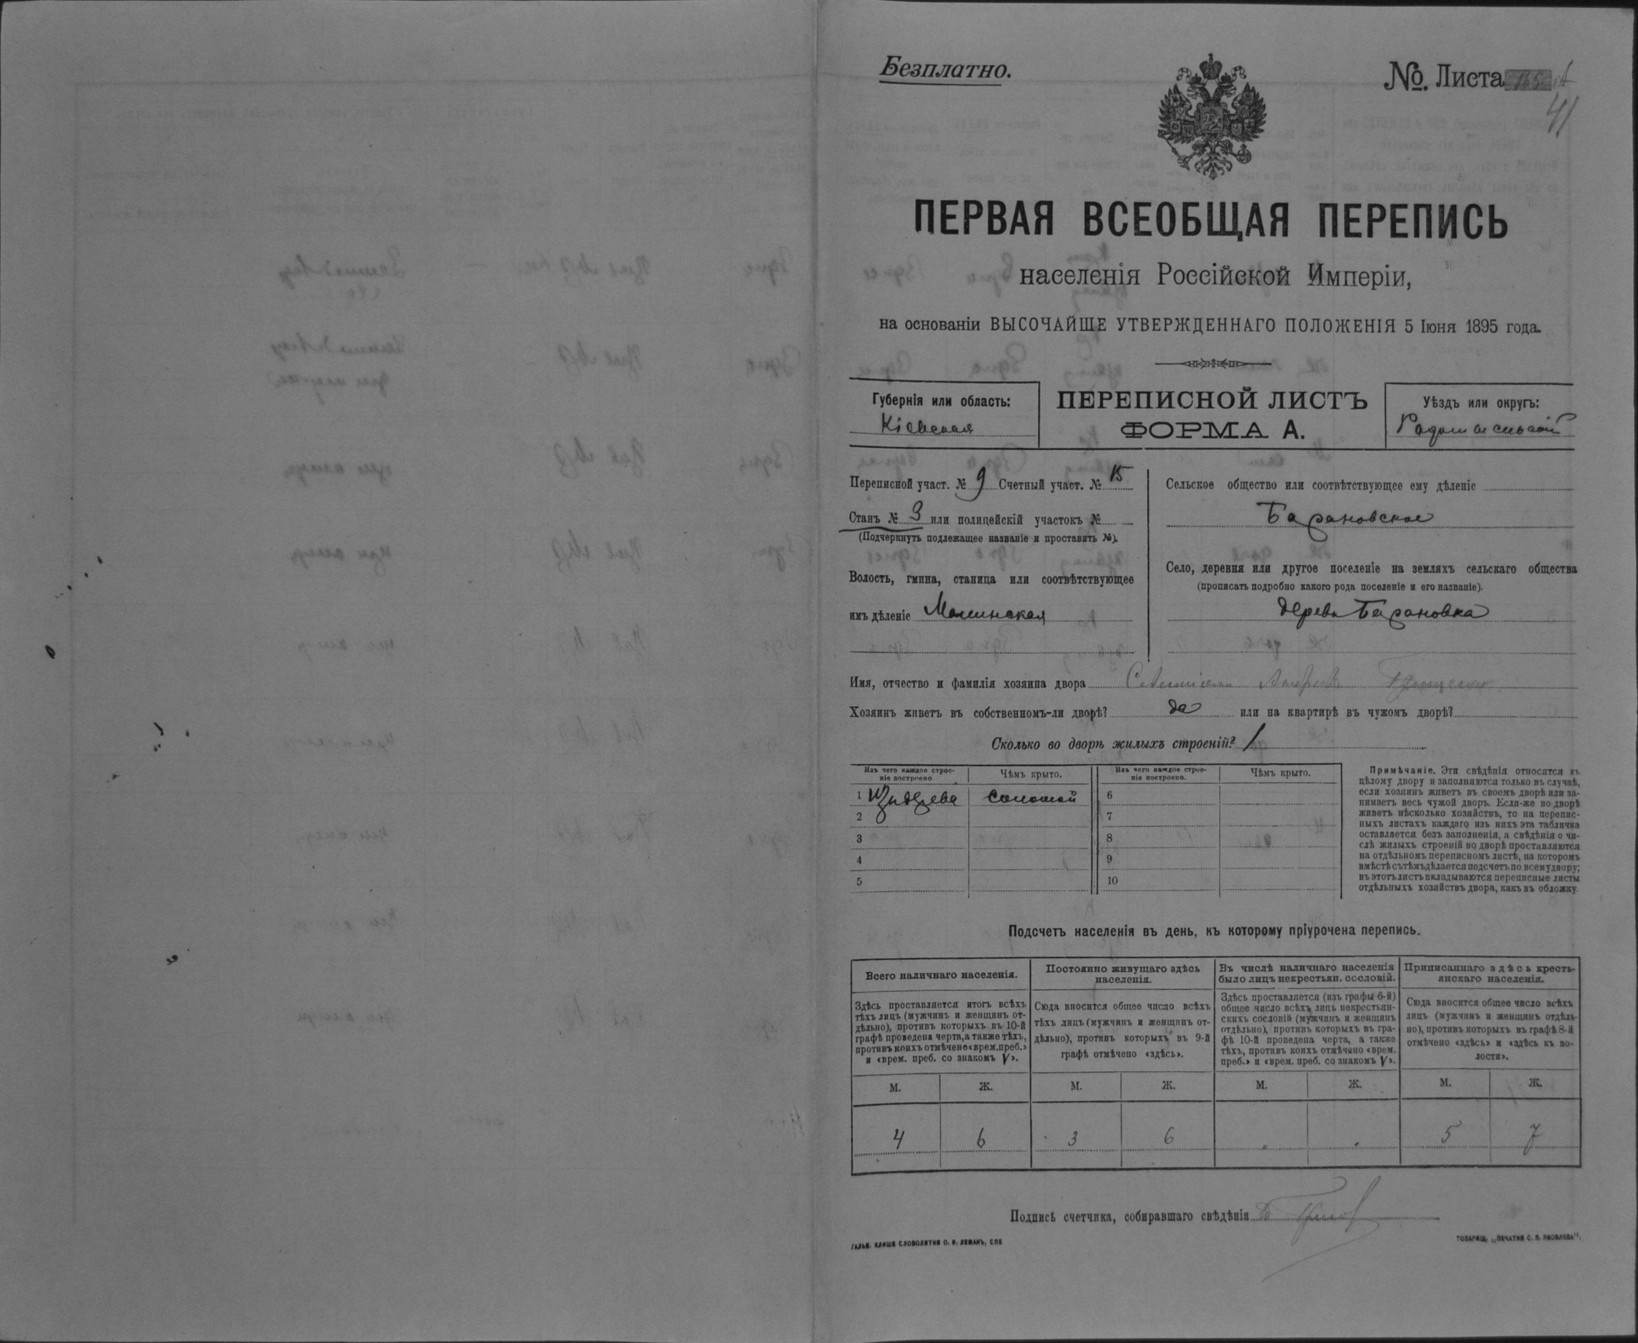 Безплатно.
№. Листа
41
ПЕРВАЯ ВСЕОБЩАЯ ПЕРЕПИСЬ
населенія Россійской Имперіи,
на основаніи ВЫСОЧАЙШЕ УТВЕРЖДЕННАГО ПОЛОЖЕНІЯ 5 Іюня 1895 года.
Губернія или область:
Кіевская
ПЕРЕПИСНОЙ ЛИСТЪ
ФОРМА А.
Уѣздъ или округъ:
Радомысльскій
Переписной участ. № 9 Счетный участ. № 15
Станъ № 3 или полицейскій участокъ №
(Подчеркнуть подлежащее названіе и проставить №).
Волость, гмина, станица или соотвѣтствующее
имъ дѣленіе Малинская
Сельское общество или соотвѣтствующее ему дѣленіе
Барановское
Село, деревня или другое поселеніе на земляхъ сельскаго общества
(прописать подробно какого рода поселеніе и его названіе).
дерев Барановка
Имя, отчество и фамилія хозяина двора
Хозяинъ живетъ въ собственномъ-ли дворѣ? да или на квартирѣ въ чужомъ дворѣ?
Сколько во дворѣ жилыхъ строеній? 1
Изъ чего каждое строе-
ніе построено
Чѣмъ крыто.
Изъ чего каждое строе-
ніе построено.
Чѣмъ крыто.
1 Изъ дерева соломой 6
2 7
3 8
4 9
5 10
Примѣчаніе. Эти свѣдѣнія относятся къ
цѣлому двору и заполняются только въ случаѣ,
если хозяинъ живетъ въ своемъ дворѣ или за-
нимаетъ весь чужой дворъ. Если-же во дворѣ
живетъ нѣсколько хозяйствъ, то на перепис-
ныхъ листахъ каждаго изъ нихъ эта табличка
оставляется безъ заполненія, а свѣдѣнія о чи-
слѣ жилыхъ строеній во дворѣ проставляются
на отдѣльномъ переписномъ листѣ, на которомъ
вмѣстѣ съ тѣмъ дѣлается подсчетъ по всему двору;
въ этотъ листъ вкладываются переписные листы
отдѣльныхъ хозяйствъ двора, какъ въ обложку.
Подсчетъ населенія въ день, къ которому пріурочена перепись.
Всего наличнаго населенія.
Здѣсь проставляется итогъ всѣхъ
тѣхъ лицъ (мужчинъ и женщинъ от-
дѣльно), противъ которыхъ въ 10-й
графѣ проведена черта, а также тѣхъ,
противъ коихъ отмѣчено «врем. преб.»
и «врем. преб. со знакомъ V».
Постоянно живущаго здѣсь
населенія.
Сюда вносится общее число всѣхъ
тѣхъ лицъ (мужчинъ и женщинъ от-
дѣльно), противъ которыхъ въ 9-й
графѣ отмѣчено «здѣсь».
Въ числѣ наличнаго населенія
было лицъ некрестьян. сословій.
Здѣсь проставляется (изъ графы 6-й)
общее число всѣхъ лицъ некрестьян-
скихъ сословій (мужчинъ и женщинъ
отдѣльно), противъ которыхъ въ гра-
фѣ 10-й проведена черта, а также
тѣхъ, противъ коихъ отмѣчено «врем.
преб.» и «врем. преб. со знакомъ V».
Приписаннаго здѣсь кресть-
янскаго населенія.
Сюда вносится общее число всѣхъ
лицъ (мужчинъ и женщинъ отдѣль-
но), противъ которыхъ въ графѣ 8-й
отмѣчено «здѣсь» и «здѣсь въ во-
лости».
М. Ж. М. Ж. М. Ж. М. Ж.
4 6 3 6 5 7
Подпись счетчика, собиравшаго свѣдѣнія
ГАЛЬВ. КЛИШЕ СЛОВОЛИТНИ О. И. ЛЕМАНЪ, СПБ
ТОВАРИЩ. „ПЕЧАТНЯ С. П. ЯКОВЛЕВА".